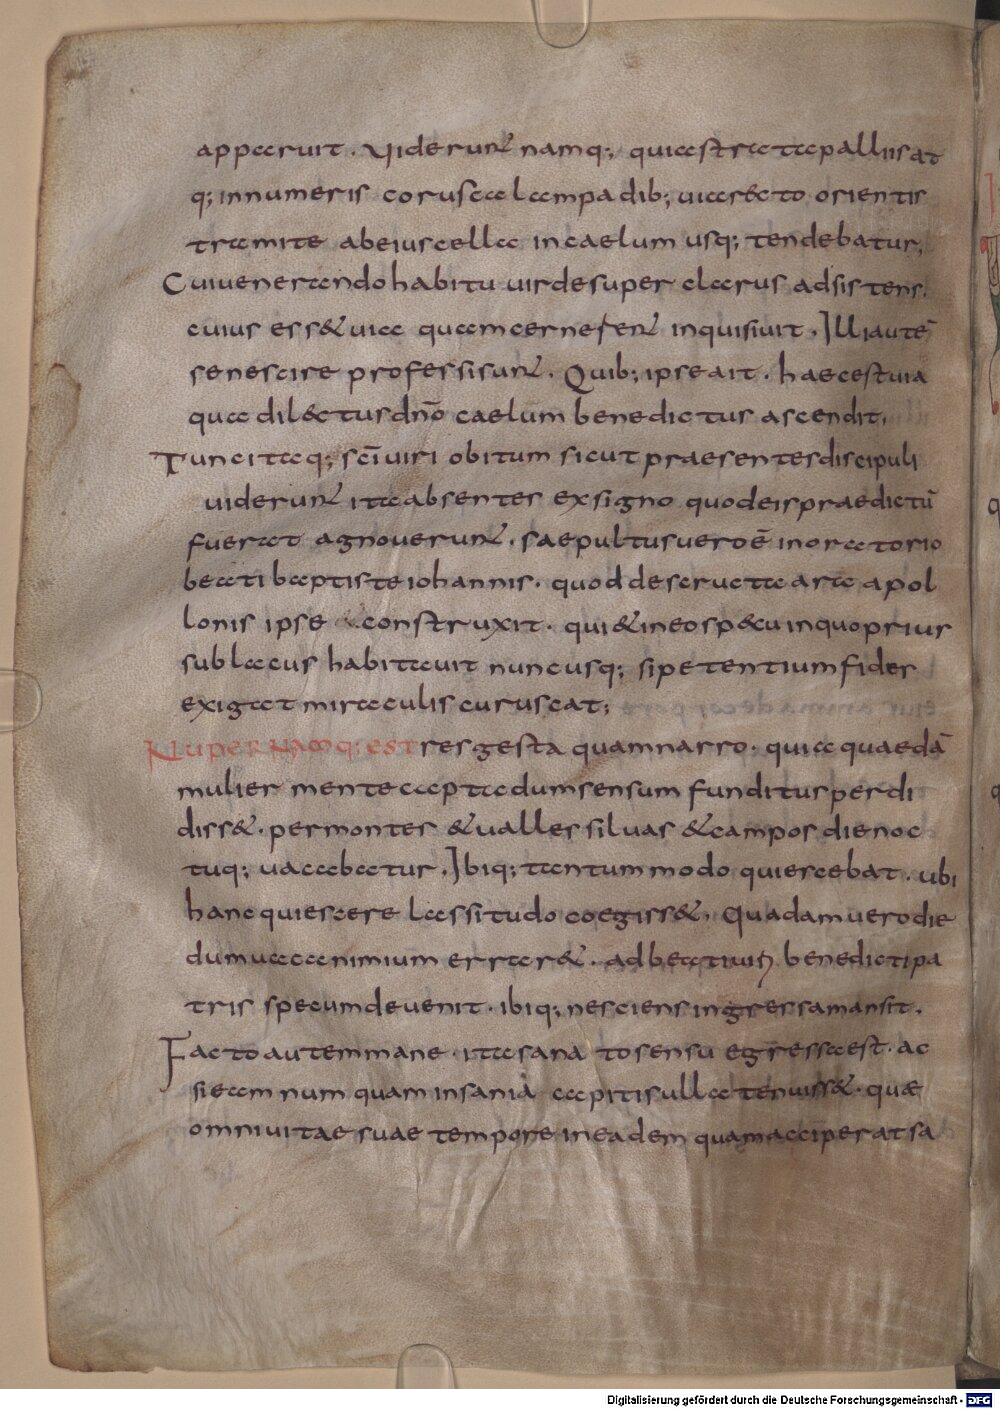 apparuit. Uiderunt namq; quia strata palliis at
q; innumeris corusca lampadib; uia recto orientis
tramite ab eius cella in caelum usq; tendebatur;
Cui uenerando habitu uir desuper clarus adsistens.
cuius ess& uia quam cernerent inquisiuit. Illi autē
se nescire professi sunt. Quib; ipse ait. haec est uia
qua dil&ctus dnō caelum benedictus ascendit.
Tunc itaq; scī uiri obitum sicut praesentes discipuli
uiderunt ita absentes ex signo quod eis praedictū
fuerat agnouerunt. saepultus uero ē in oratorio
beati baptiste iohannis. quod destructa ara apol
lonis ipse construxit. qui & in eo specu in quo prius
sublacus habitauit nunc usq; si petentium fides
exigat miraculis curuscat;
Nuper namq; est res gesta quam narro. quia quaedā
mulier mente capta dum sensum funditus perdi
diss&. per montes & ualles siluas & campos die noc
tuq; uacabatur. Ibiq; tantum modo quiescebat. ubi
hanc quiescere lassitudo coegiss&. Quadam uero die
dum uaca nimium errar&. ad beati uiri benedicti pa
tris specum deuenit. ibiq; nesciens ingressa mansit.
Facto autem mane. ita sanato sensu egressa est. ac
si eam num quam insania capitis ulla tenuiss&. quæ
omni uitae suae tempore in eadem quam acciperat sa
Digitalisierung gefördert durch die Deutsche Forschungsgemeinschaft - DFG